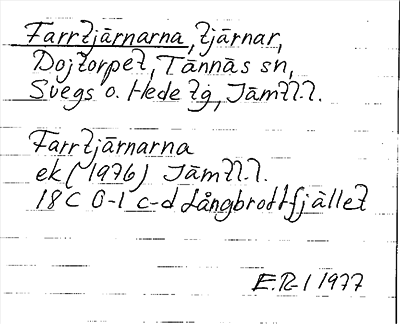 Farrtjärnarna, tjärnar,
Dojtorpet, Tännäs sn,
Svegs o. Hede tg, Jämtl.l.
Farrtjärnarna
ek (1976) Jämtl.l.
18C 0-1 c-d Långbrottfjället
E.R-l 1977